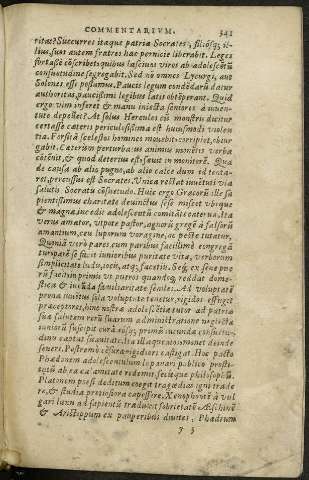 COMMENTARIVM. 341
ritae? Succurres itaque patriae Socrates, filiosq; il-
lius, sint autem fratres hac pernicie liberabit. Leges
fortasse conscribet: quibus lasciuos viros ab adolescentũ
consuetudine segregabit. Sed nõ omnes Lycurgi, aut
Solones esse possumus. Paucis legum condendarũ datur
authoritas, paucissimi legibus latis obtẽperant. Quid
ergo? vim inferet & manu iniecta seniores a iuuen-
tute depellet? At solus Hercules cũ monstris dicitur
certasse
ceteris periculosissima est huiusmodi violen
tia. Forsitã scelestos homines mouebit: corripiet, obiur
gabit. Caeterum perturbatus animus monẽtis verba
cõtẽnit, & quod deterius est saeuit in monitorẽ. Qua
de causa ab alio pugno, ab alio calce dum id tenta-
ret, percussus est Socrates. Vnica restat iuuẽtuti via
salutis Socratis cõsuetudo. Huic ergo Graecorũ ille sa
pientissimus charitate deuinctus sese miscet vbique
& magna incedit adolescentũ comitãte caterua. Ita
verus amator, vt pote pastor, agnorũ gregẽ a falsorũ
amantium, ceu luporum voragine, ac peste tutatur.
Quoniã verò pares cum paribus facillimè congregã
tur: parẽ se facit iunioribus puritate vitae, verborum
simplicitate ludo, iocis, atq; facetijs. Seq; ex sene pue
rũ facit in primis vt pueros quandoq; reddat dome-
stica & iucũda familiaritate seniles. Ad voluptatẽ
prona iuuẽtus sola voluptate tenetur, rigidos effugit
praeceptores, hinc nostrae adolescẽtiae tutor ad patriae
suae salutem rerũ suarum administratione neglecta
iuniorũ suscipit curã eosq; primũ iucunda consuetu-
dinis captat suauitate. Ita illaqueatos monet deinde
seuere. Postremò cẽsura rigidiori castigat. Hoc pacto
Phaedonem adolescentulum lupanari publico prosti-
tutũ ab ea calamitate redemit, fecitque philosophũ.
Platonem poesi deditum coegit tragoedias igni trade
re, & studia pretiosiora capessere. Xenophontẽ à vul
gari luxu ad sapientũ traduxit sobrietatẽ. Aeschinẽ
& Aristippum ex pauperibus diuites, Phaedrum
y 3